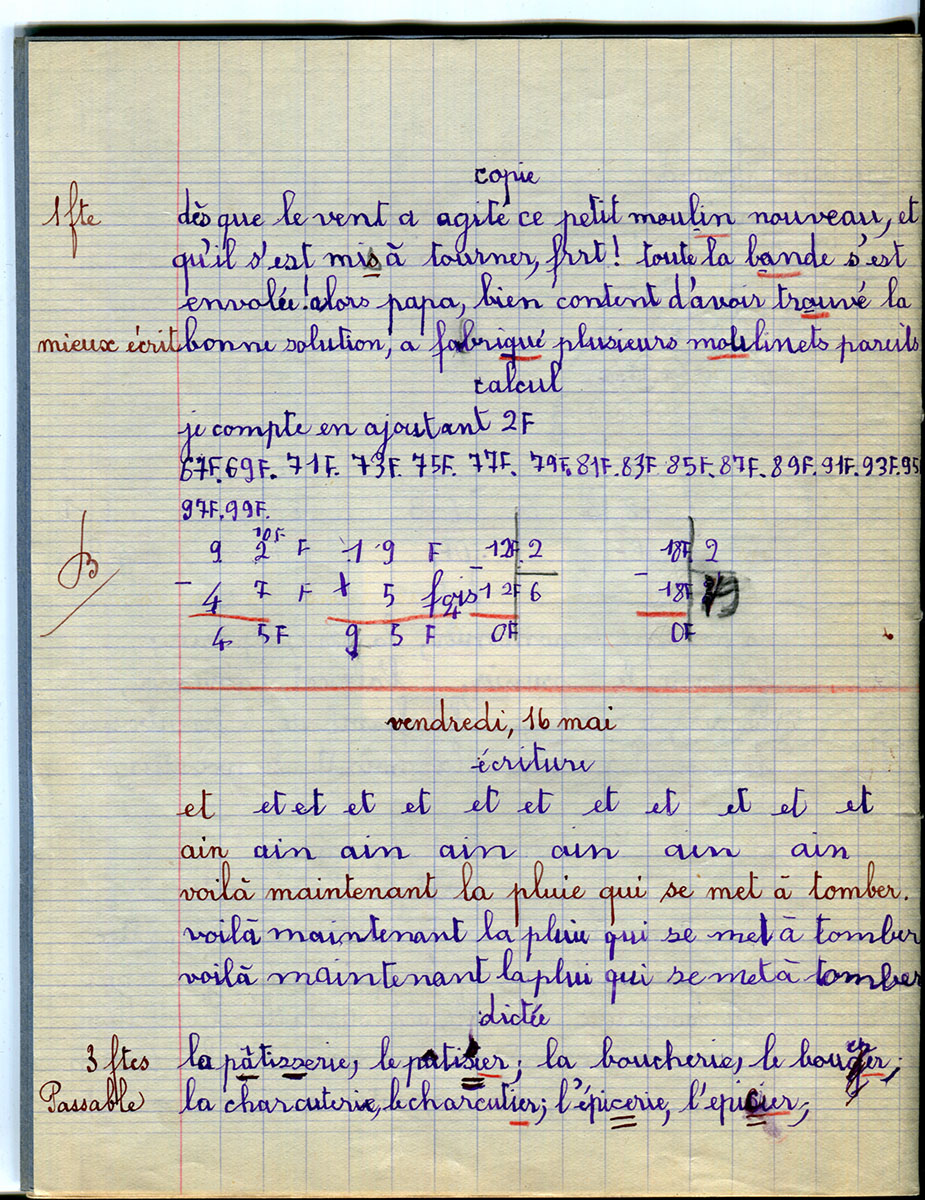 copie
1 fte dès que le vent a agité ce petit moulin nouveau, et
qu'il s'est mis à tourner, frrt! toute la bande s'est
envolée! alors papa, bien content d'avoir trouvé la
mieux écrit bonne solution, a fabriqué plusieurs moulinets pareils
calcul
je compte en ajoutant 2F
67F. 69F. 71F. 73F. 75F. 77F. 79F. 81F. 83F. 85F. 87F. 89F. 91F. 93F. 95
97F. 99F.
10F
B 9 2 F 19 F 12F 2 18F 2
- 4 7 F + 5 fois - 12F 6 - 18F 9
4
4 5F 9 5 F 0F 0F
vendredi, 16 mai
écriture
et et et et et et et et et et et et
ain ain ain ain ain ain ain
voilà maintenant la pluie qui se met à tomber.
voilà maintenant la pluie qui se met à tomber
voilà maintenant la plui qui se met à tomber
dictée
3 ftes la pâtisserie, le patisier; la boucherie, le boucher;
Passable la charcuterie, le charcutier; l'épicerie, l'epicier;